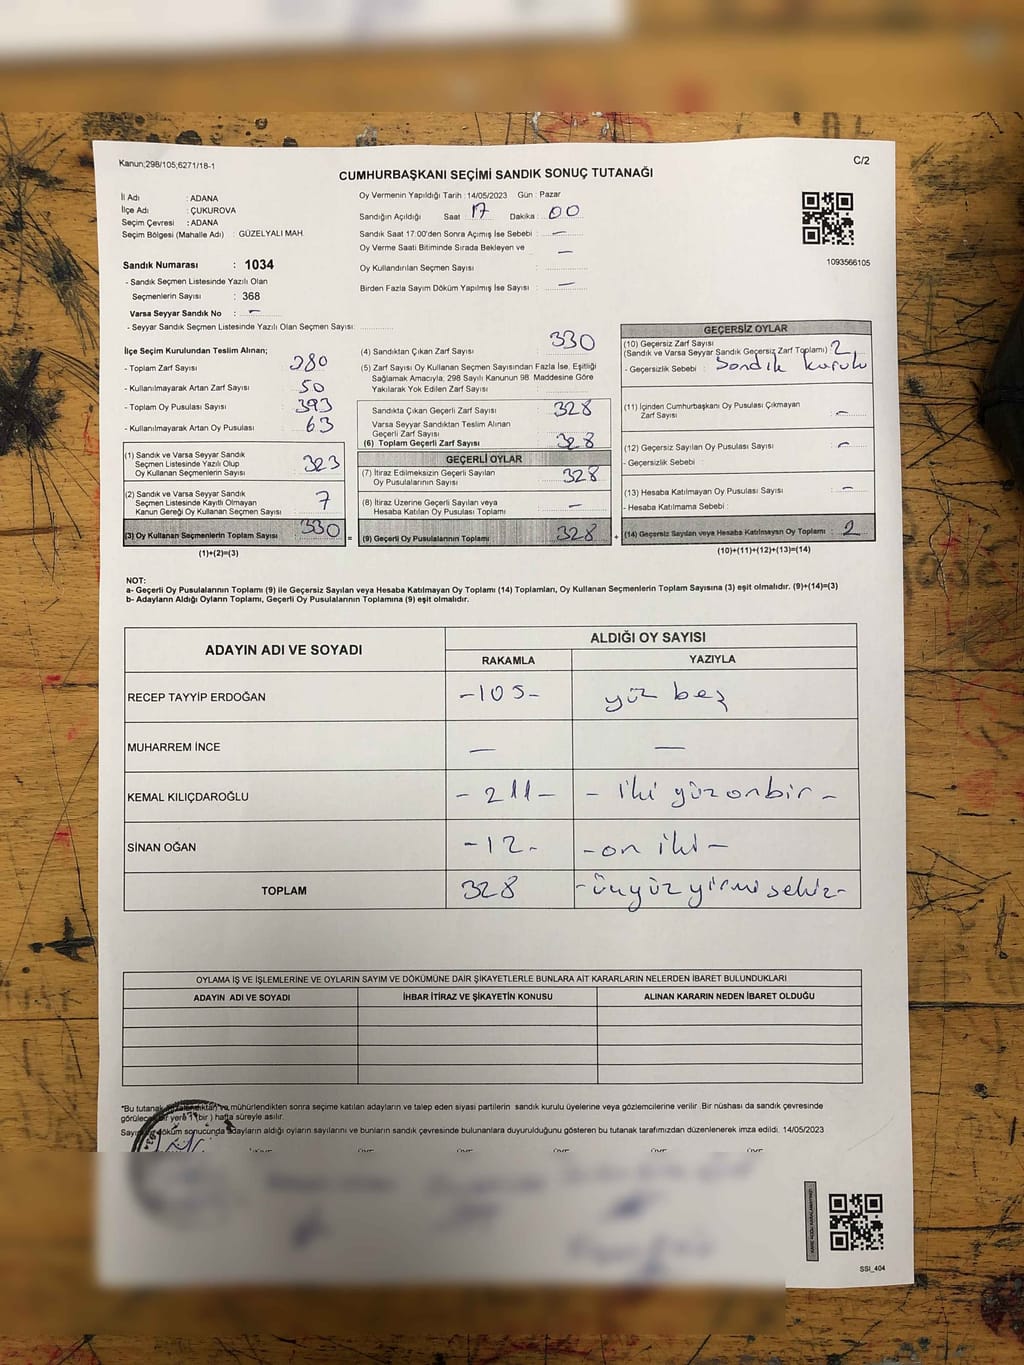 Kanun;298/105,6271/18-1
C/2
CUMHURBAŞKANI SEÇİMİ SANDIK SONUÇ TUTANAĞI
İl Adı : ADANA
İlçe Adı : ÇUKUROVA
Seçim Çevresi : ADANA
Seçim Bölgesi (Mahalle Adı) : GÜZELYALI MAH.
Sandık Numarası : 1034
- Sandık Seçmen Listesinde Yazılı Olan
Seçmenlerin Sayısı : 368
Varsa Seyyar Sandık No : -
- Seyyar Sandık Seçmen Listesinde Yazılı Olan Seçmen Sayısı:
Oy Vermenin Yapıldığı Tarih : 14/05/2023 Gün : Pazar
Sandığın Açıldığı Saat : 17 Dakika : 00
Sandık Saat 17:00'den Sonra Açımış İse Sebebi : -
Oy Verme Saati Bitiminde Sırada Bekleyen ve -
Oy Kullandırılan Seçmen Sayısı :
Birden Fazla Sayım Döküm Yapılmış İse Sayısı : -
1093566105
İlçe Seçim Kurulundan Teslim Alınan;
- Toplam Zarf Sayısı : 380
- Kullanılmayarak Artan Zarf Sayısı : 50
- Toplam Oy Pusulası Sayısı : 393
- Kullanılmayarak Artan Oy Pusulası : 63
(1) Sandık ve Varsa Seyyar Sandık
Seçmen Listesinde Yazılı Olup
Oy Kullanan Seçmenlerin Sayısı : 323
(2) Sandık ve Varsa Seyyar Sandık
Seçmen Listesinde Kayıtlı Olmayan
Kanun Gereği Oy Kullanan Seçmen Sayısı : 7
(3) Oy Kullanan Seçmenlerin Toplam Sayısı : 330
(1)+(2)=(3)
(4) Sandıktan Çıkan Zarf Sayısı : 330
(5) Zarf Sayısı Oy Kullanan Seçmen Sayısından Fazla İse, Eşitliği
Sağlamak Amacıyla, 298 Sayılı Kanunun 98. Maddesine Göre
Yakılarak Yok Edilen Zarf Sayısı :
Sandıkta Çıkan Geçerli Zarf Sayısı : 328
Varsa Seyyar Sandıktan Teslim Alınan
Geçerli Zarf Sayısı :
(6) Toplam Geçerli Zarf Sayısı : 328
GEÇERLİ OYLAR
(7) İtiraz Edilmeksizin Geçerli Sayılan
Oy Pusulalarının Sayısı : 328
(8) İtiraz Üzerine Geçerli Sayılan veya
Hesaba Katılan Oy Pusulası Toplamı : -
= (9) Geçerli Oy Pusulalarının Toplamı : 328 +
GEÇERSİZ OYLAR
(10) Geçersiz Zarf Sayısı
(Sandık ve Varsa Seyyar Sandık Geçersiz Zarf Toplamı) : 2
- Geçersizlik Sebebi : Sandık kurulu
(11) İçinden Cumhurbaşkanı Oy Pusulası Çıkmayan
Zarf Sayısı : -
(12) Geçersiz Sayılan Oy Pusulası Sayısı : -
- Geçersizlik Sebebi :
(13) Hesaba Katılmayan Oy Pusulası Sayısı : -
- Hesaba Katılmama Sebebi :
(14) Geçersiz Sayılan veya Hesaba Katılmayan Oy Toplamı : 2
(10)+(11)+(12)+(13)=(14)
NOT:
a- Geçerli Oy Pusulalarının Toplamı (9) ile Geçersiz Sayılan veya Hesaba Katılmayan Oy Toplamı (14) Toplamları, Oy Kullanan Seçmenlerin Toplam Sayısına (3) eşit olmalıdır. (9)+(14)=(3)
b- Adayların Aldığı Oyların Toplamı, Geçerli Oy Pusulalarının Toplamına (9) eşit olmalıdır.
ADAYIN ADI VE SOYADI ALDIĞI OY SAYISI
RAKAMLA YAZIYLA
RECEP TAYYİP ERDOĞAN -105- yüz beş
MUHARREM İNCE - -
KEMAL KILIÇDAROĞLU -211- -iki yüz onbir-
SİNAN OĞAN -12- -on iki-
TOPLAM 328 -üçyüz yirmi sekiz-
OYLAMA İŞ VE İŞLEMLERİNE VE OYLARIN SAYIM VE DÖKÜMÜNE DAİR ŞİKAYETLERLE BUNLARA AİT KARARLARIN NELERDEN İBARET BULUNDUKLARI
ADAYIN ADI VE SOYADI İHBAR İTİRAZ VE ŞİKAYETİN KONUSU ALINAN KARARIN NEDEN İBARET OLDUĞU
*Bu tutanak mühürlendikten sonra seçime katılan adayların ve talep eden siyasi partilerin sandık kurulu üyelerine veya gözlemcilerine verilir. Bir nüshası da sandık çevresinde
yere 1 (bir) hafta süreyle asılır.
döküm sonucunda adayların aldığı oyların sayılarını ve bunların sandık çevresinde bulunanlara duyurulduğunu gösteren bu tutanak tarafımızdan düzenlenerek imza edildi. 14/05/2023
SSI_404